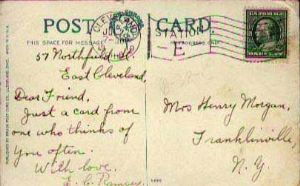 POST CARD.
THIS SPACE FOR MESSAGE
CLEVELAND
STATION
E
57 Northfield
East Cleveland,
Dear Friend,
Just a card from
one who thinks of
you often.
With love.
Mrs Henry Morgan,
Franklinville,
N. Y